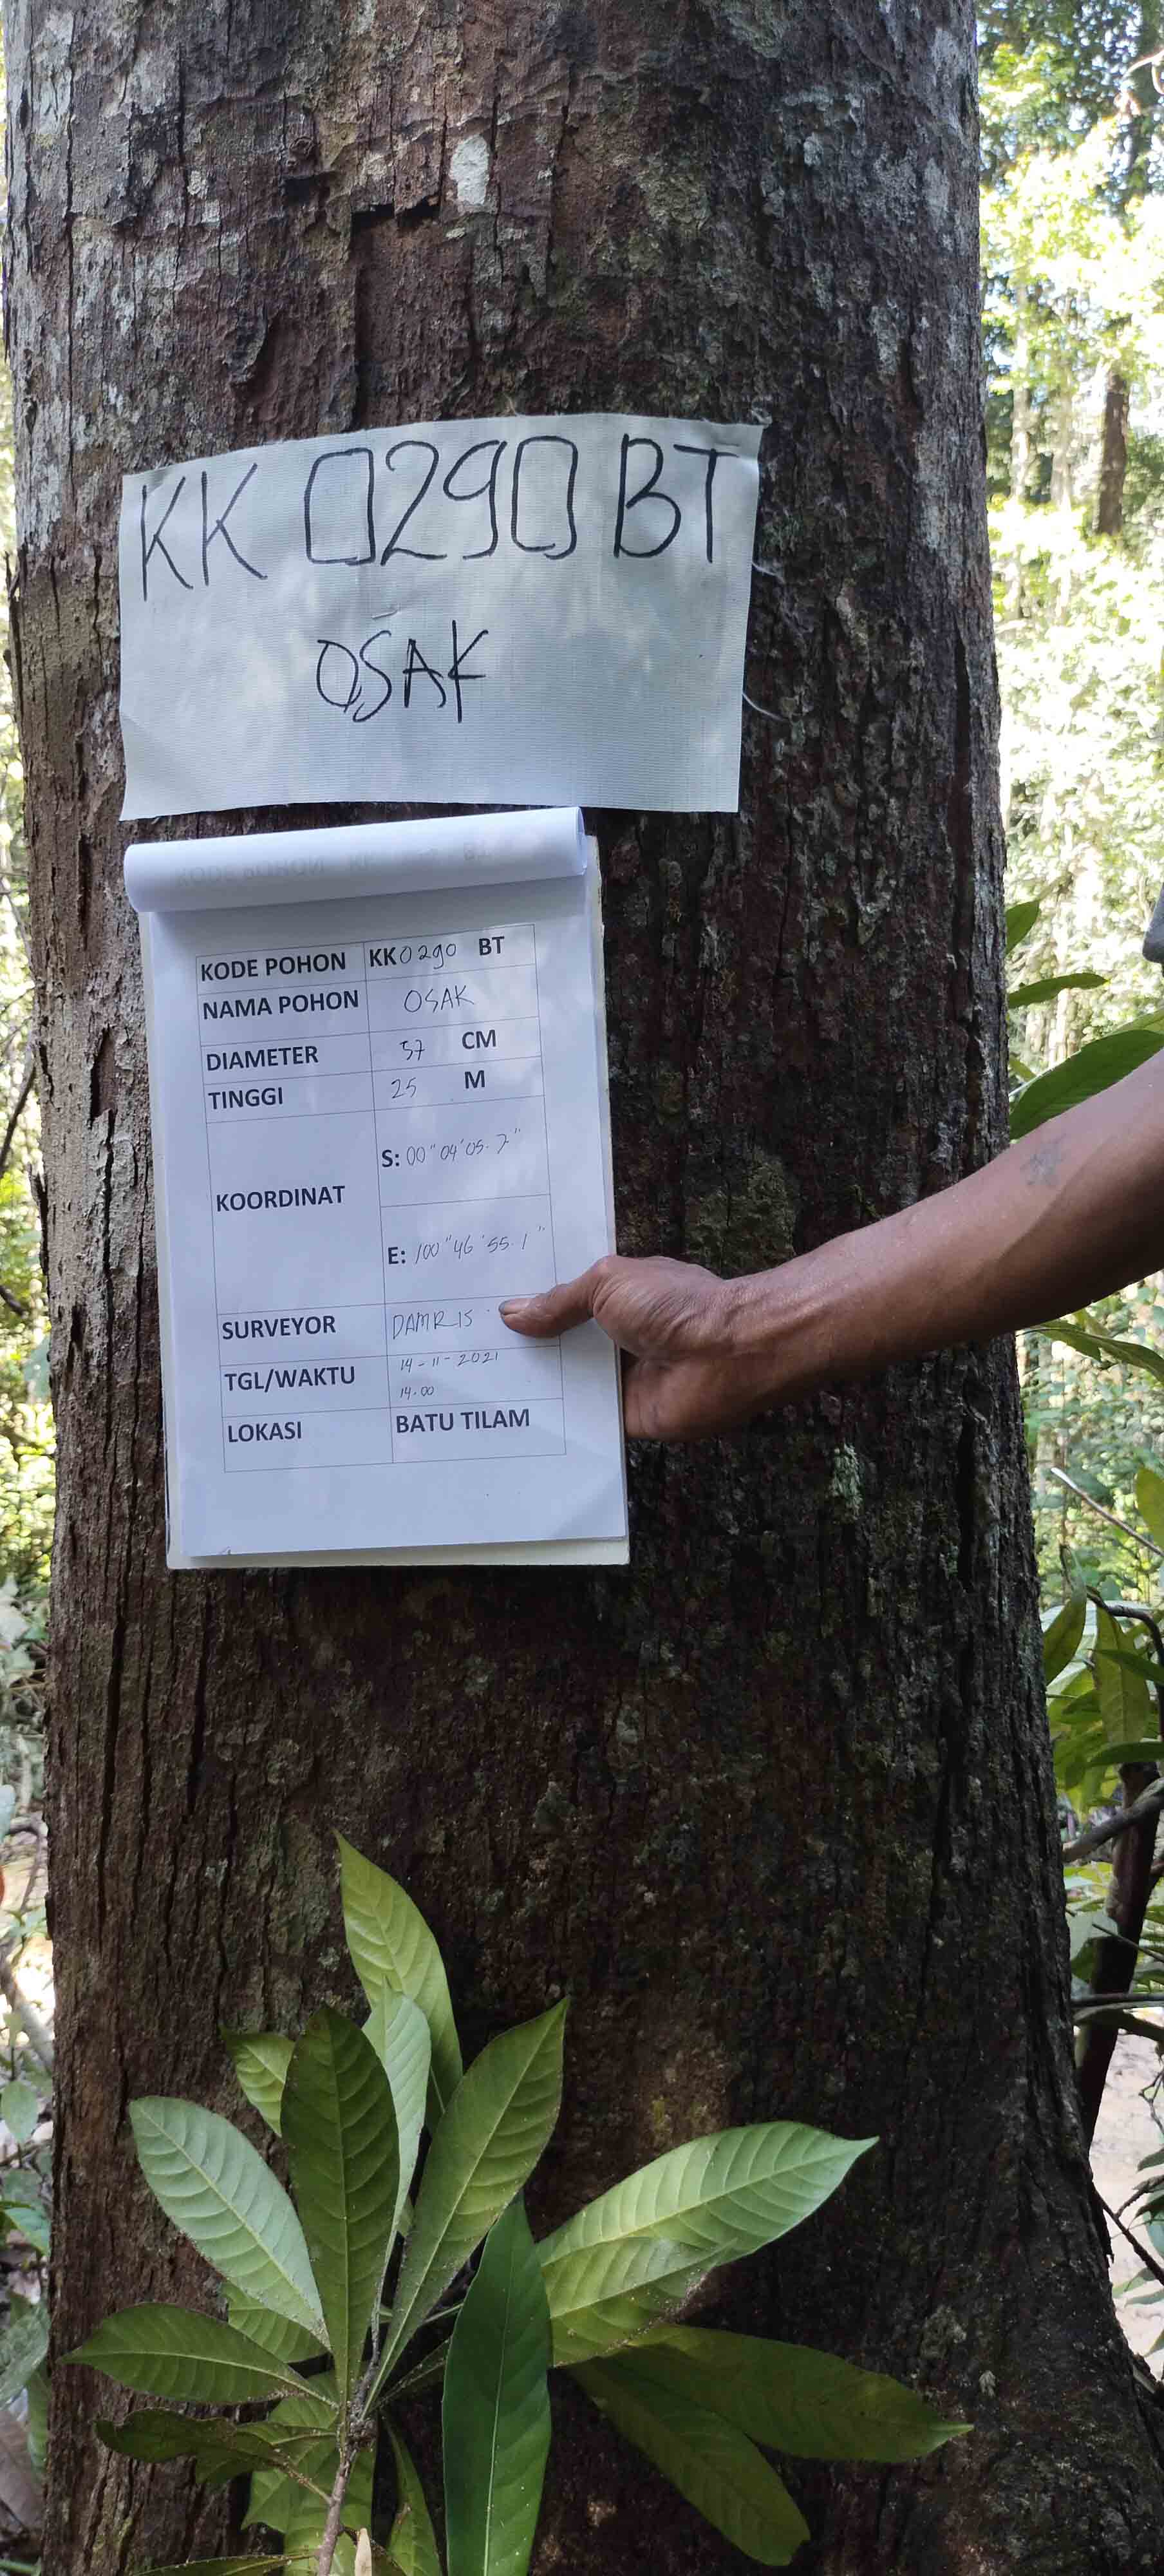 KK 0290 BT
OSAK
KODE POHON KK 0290 BT
NAMA POHON OSAK
DIAMETER 57 CM
TINGGI 25 M
KOORDINAT
S: 00"04'05.7"
E: 100"46'55.1"
SURVEYOR DAMRIS
TGL/WAKTU 14-11-2021
14.00
LOKASI BATU TILAM